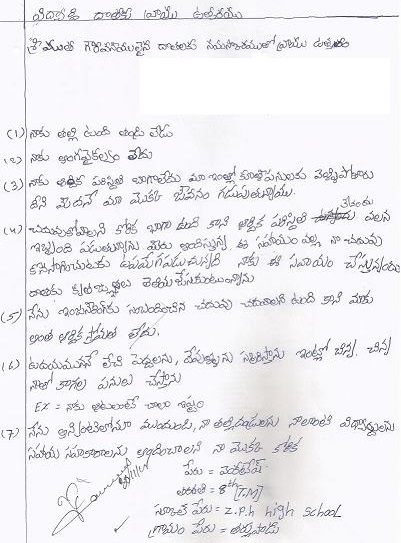 విద్యార్థి దాతకు వ్రాయు ఉత్తరము
శ్రీయుత గౌరవనీయులైన దాతలకు నమస్కారములతో వ్రాయు ఉత్తరం
(1) నాకు తల్లి ఉంది తండ్రి లేడు
(2) నాకు అంగవైకల్యం లేదు
(3) నాకు ఆర్థిక పరిస్థితి బాగాలేదు మా ఇంట్లో కూలిపనులకు వెళ్ళిపోతారు
దీని మీదనే మా మొక్క జీవనం గడుపుతున్నాము.
(4) చదువుకోవాలని కోరిక బాగా ఉంది కాని ఆర్థిక పరిస్థితి లేనందు వలన
ఇబ్బంది పడుతున్నాను మీరు అందిస్తున్న ఈ సహాయం వల్ల నా చదువు
కొనసాగించుటకు ఉపయోగపడుచున్నది నాకు ఈ సహాయం చేస్తున్నందు
దాతకు కృతజ్ఞతలు తెలియజేసుకుంటున్నాను
(5) నేను ఇంజనీరింగ్‌కు సంబంధించిన చదువు చదవాలని ఉంది కాని మాకు
అంత ఆర్థిక స్థోమత లేదు.
(6) ఉదయమునే లేచి పెద్దలను, దేవుళ్ళను నమస్కరిస్తాను ఇంట్లో చిన్న చిన్న
నాతో కాగల పనులు చేస్తాను
Ex = నాకు ఆటలంటే చాలా ఇష్టం
(7) నేను అన్నింటిలోనూ ముందుండి, నా తల్లిదండ్రులను నాలాంటి విద్యార్థులను
సహాయ సహకారాలను అందించాలని నా మొక్క కోరిక
పేరు = వెంకటేష్
తరగతి = 8th [T.M]
స్కూల్ పేరు = z.p.h high school
గ్రామం పేరు =